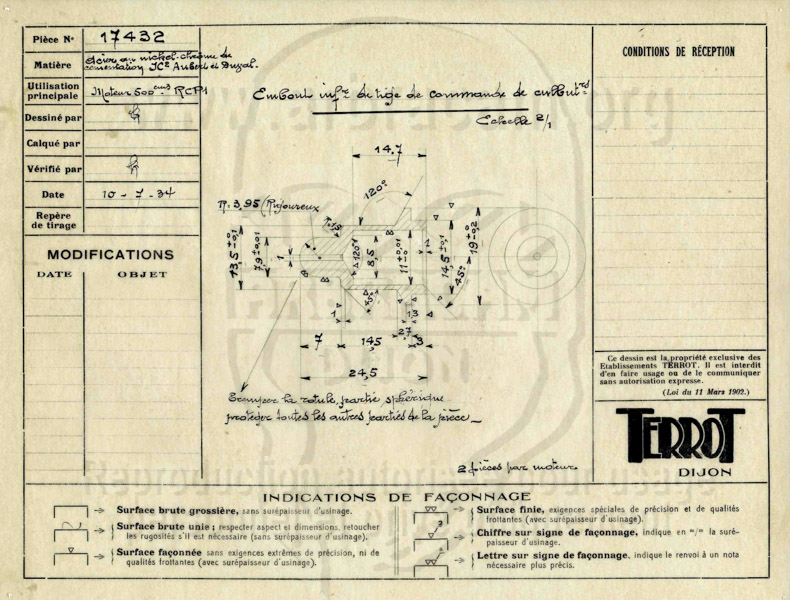 Pièce N° 17432
Matière acier au nickel-chrome de
cémentation NC2 Aubert et Duval.
Utilisation
principale Moteur 500 cm3 RCP1
Dessiné par
Calqué par
Vérifié par
Date 10-7-34
Repère
de tirage
MODIFICATIONS
DATE OBJET
Embout infr de tige de commande de culbutrs
Echelle 2/1
14.7
120°
R. 3,95 (Rigoureux
13,5
7,9 ±0,01
1
120°
8,5
11
14,5
45°
19
45°
1
1,3
2,7
7 14,5 3
24,5
Tremper la rotule, partie sphérique
protéger toutes les autres parties de la pièce_
2 pièces par moteur
CONDITIONS DE RÉCEPTION
Ce dessin est la propriété exclusive des
Etablissements TERROT. Il est interdit
d'en faire usage ou de le communiquer
sans autorisation expresse.
(Loi du 11 Mars 1902.)
TERROT
DIJON
INDICATIONS DE FAÇONNAGE
Surface brute grossière, sans surépaisseur d'usinage.
Surface brute unie; respecter aspect et dimensions, retoucher
les rugosités s'il est nécessaire (sans surépaisseur d'usinage).
Surface façonnée sans exigences extrêmes de précision, ni de
qualités frottantes (avec surépaisseur d'usinage).
Surface finie, exigences spéciales de précision et de qualités
frottantes (avec surépaisseur d'usinage).
Chiffre sur signe de façonnage, indique en "/" la suré-
paisseur d'usinage.
Lettre sur signe de façonnage, indique le renvoi à un nota
nécessaire plus précis.